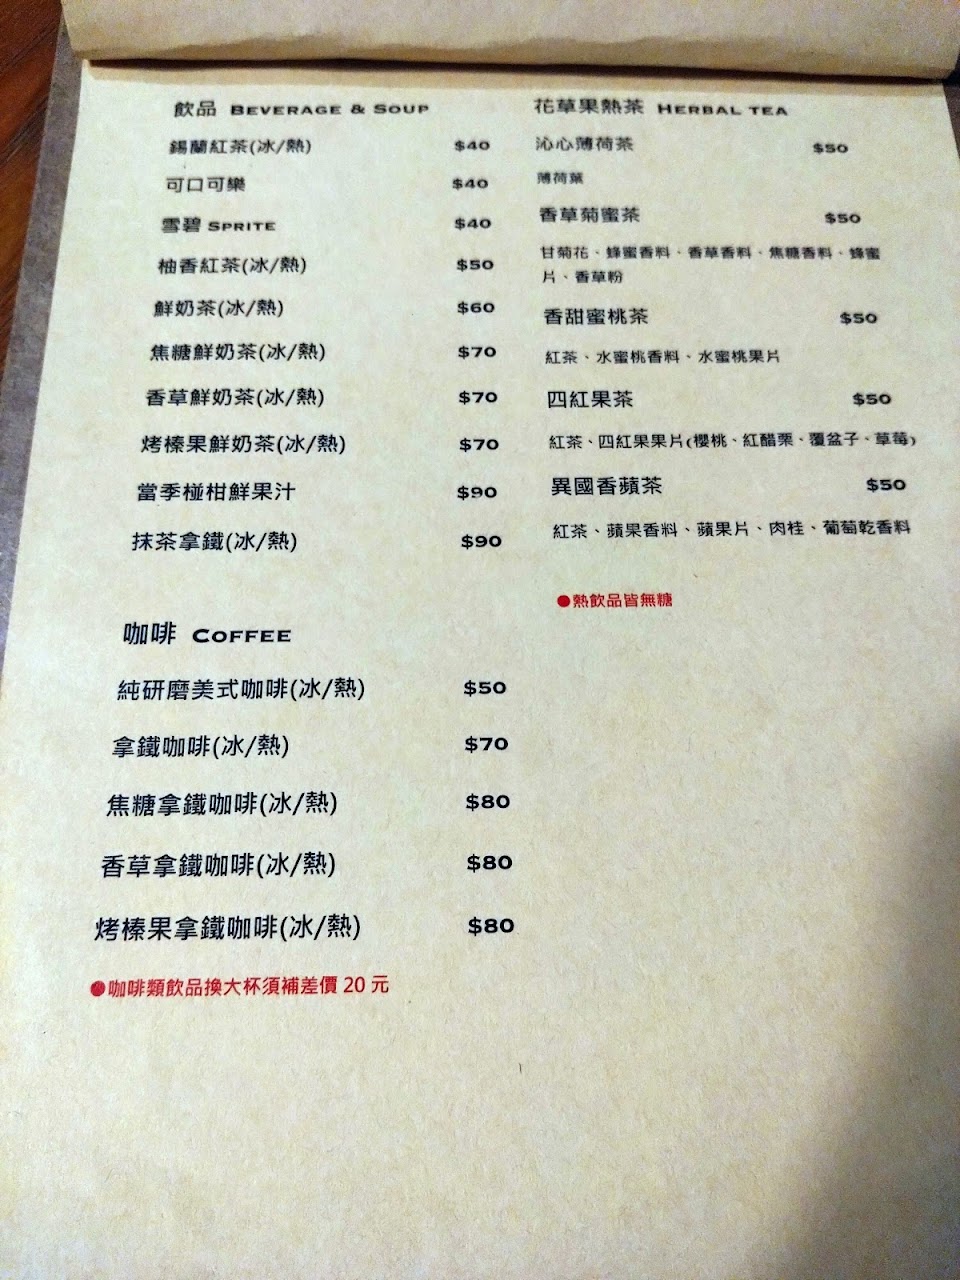 飲品 BEVERAGE & SOUP
錫蘭紅茶(冰/熱) $40
可口可樂 $40
雪碧 SPRITE $40
柚香紅茶(冰/熱) $50
鮮奶茶(冰/熱) $60
焦糖鮮奶茶(冰/熱) $70
香草鮮奶茶(冰/熱) $70
烤榛果鮮奶茶(冰/熱) $70
當季椪柑鮮果汁 $90
抹茶拿鐵(冰/熱) $90
咖啡 COFFEE
純研磨美式咖啡(冰/熱) $50
拿鐵咖啡(冰/熱) $70
焦糖拿鐵咖啡(冰/熱) $80
香草拿鐵咖啡(冰/熱) $80
烤榛果拿鐵咖啡(冰/熱) $80
●咖啡類飲品換大杯須補差價 20 元
花草果熱茶 HERBAL TEA
沁心薄荷茶 $50
薄荷葉
香草菊蜜茶 $50
甘菊花、蜂蜜香料、香草香料、焦糖香料、蜂蜜
片、香草粉
香甜蜜桃茶 $50
紅茶、水蜜桃香料、水蜜桃果片
四紅果茶 $50
紅茶、四紅果果片(櫻桃、紅醋栗、覆盆子、草莓)
異國香蘋茶 $50
紅茶、蘋果香料、蘋果片、肉桂、葡萄乾香料
●熱飲品皆無糖